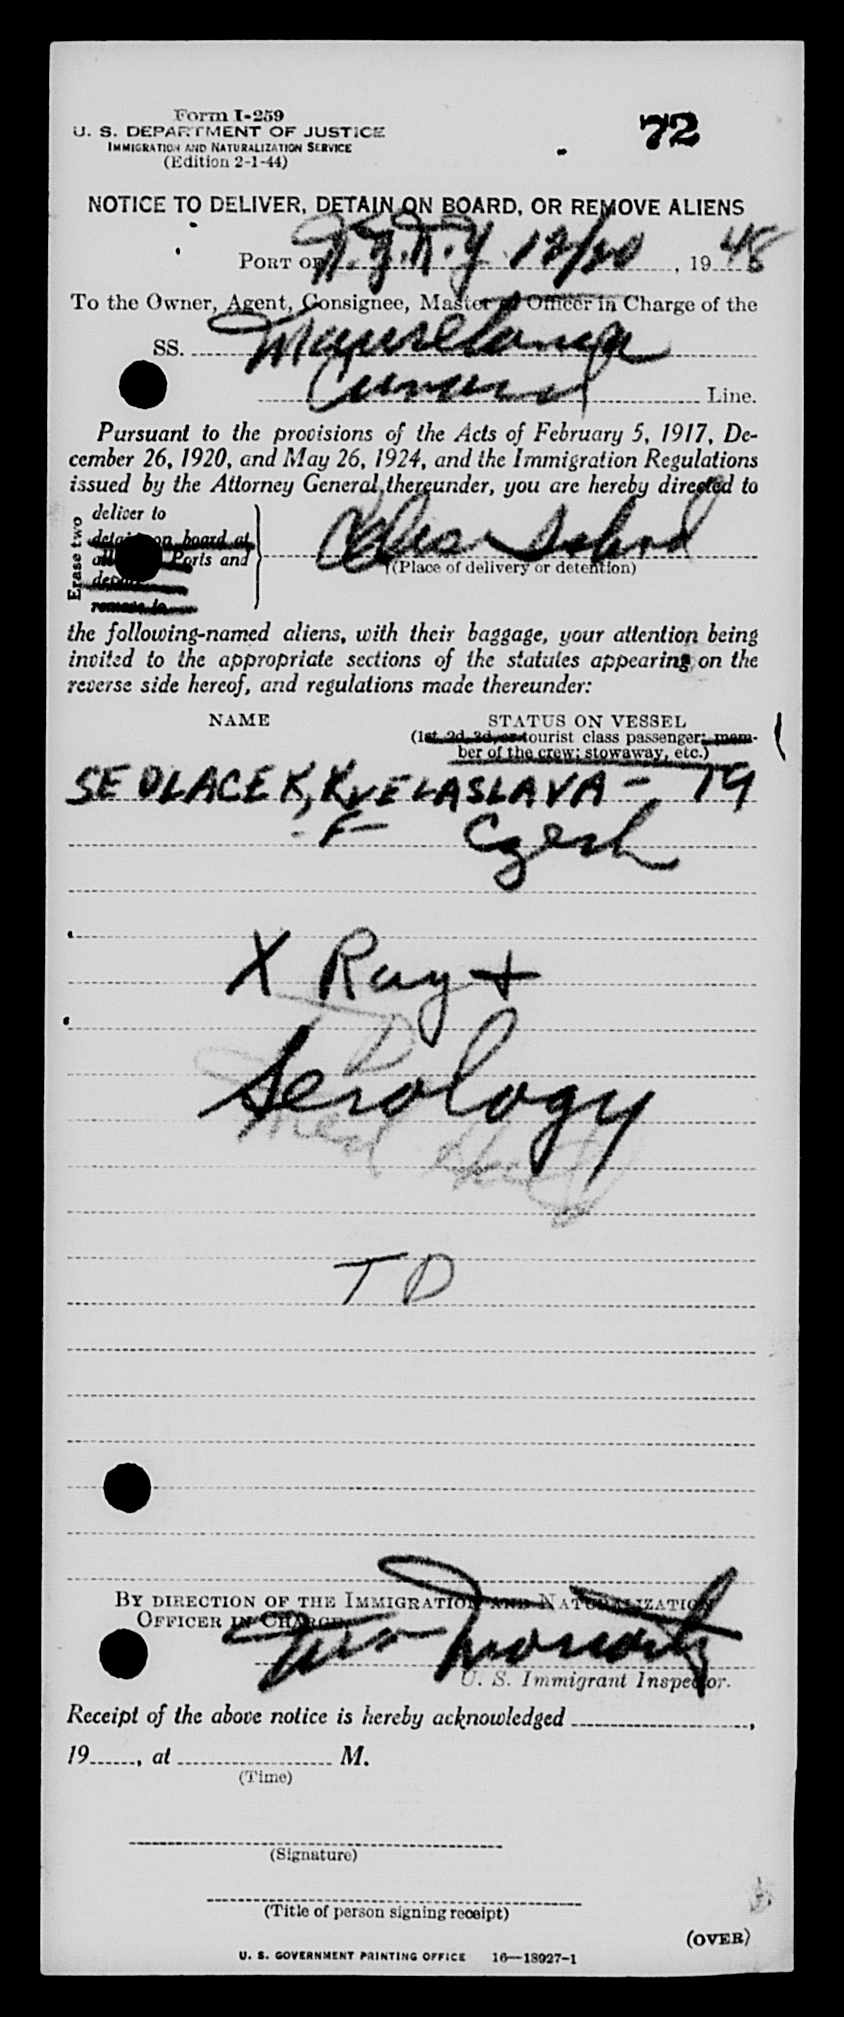 Form I-259
U. S. DEPARTMENT OF JUSTICE
IMMIGRATION AND NATURALIZATION SERVICE
(Edition 2-1-44)
72
NOTICE TO DELIVER, DETAIN ON BOARD, OR REMOVE ALIENS
PORT OF N.Y.N.Y 12/20, 1948
To the Owner, Agent, Consignee, Master or Officer in Charge of the
SS. Mauretania
Cunard Line.
Pursuant to the provisions of the Acts of February 5, 1917, De-
cember 26, 1920, and May 26, 1924, and the Immigration Regulations
issued by the Attorney General thereunder, you are hereby directed to
Erase two
deliver to
detain on board at
all Ports and
remove to
Ellis Island
(Place of delivery or detention)
the following-named aliens, with their baggage, your attention being
invited to the appropriate sections of the statutes appearing on the
reverse side hereof, and regulations made thereunder:
NAME STATUS ON VESSEL
(1st, 2d, 3d, or tourist class passenger; mem-
ber of the crew; stowaway, etc.)
SEDLACEK, KVELASLAVA - 19
- F - Czech
X Ray +
Serology
Med
T D
BY DIRECTION OF THE IMMIGRATION AND NATURALIZATION
OFFICER IN CHARGE
U. S. Immigrant Inspector.
Receipt of the above notice is hereby acknowledged ,
19 , at M.
(Time)
(Signature)
(Title of person signing receipt)
(OVER)
U. S. GOVERNMENT PRINTING OFFICE 16—18927-1